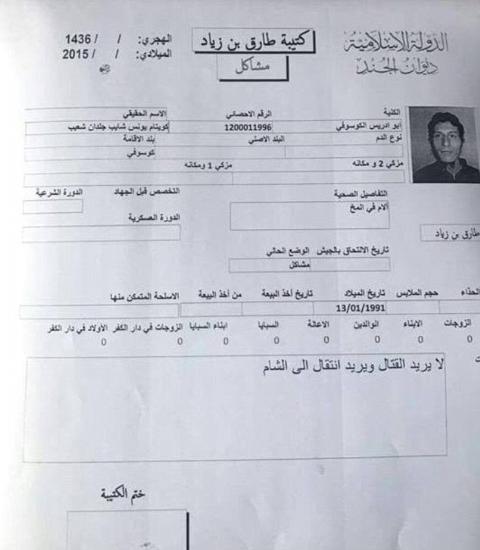 الدولة الاسلامية
ديوان الجند
كتيبة طارق بن زياد
مشاكل
الهجري: / / 1436
الميلادي: / / 2015
الكنية الرقم الاحصاني الاسم الحقيقي
ابو ادريس الكوسوفي 1200011996 كويتام يونس شايب جلدان شعيب
نوع الدم البلد الاصلي بلد الاقامة
كوسوفي
مزكي 2 و مكانه مزكي 1 ومكانه
التفاصيل الصحية التخصص قبل الجهاد الدورة الشرعية
آلام في المخ
الدورة العسكرية
طارق بن زياد
تاريخ الالتحاق بالجيش الوضع الحالي
مشاكل
الحذاء حجم الملابس تاريخ الميلاد تاريخ أخذ البيعة من أخذ البيعة الاسلحة المتمكن منها
13/01/1991
الزوجات الابناء الوالدين الاعالة السبايا ابناء السبايا الزوجات في دار الكفر الأولاد في دار الكفر
0 0 0 0 0 0 0 0
لا يريد القتال ويريد انتقال الى الشام
ختم الكتيبة